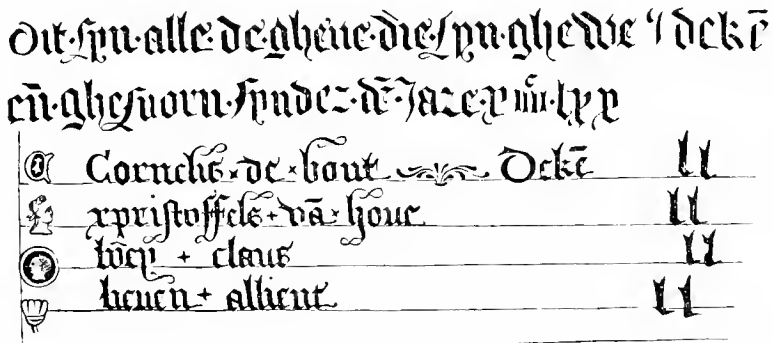 Dit · syn · alle · de · ghene · die · syn · ghewe ⁊ dekē
eñ · ghesworn · synder · dē · Jare · x iiijᶜ · lxx
Cornelis × de × bout Dekē ll
xpristoffels + vā × houe ll
+ claus ll
lieuen + allient ll